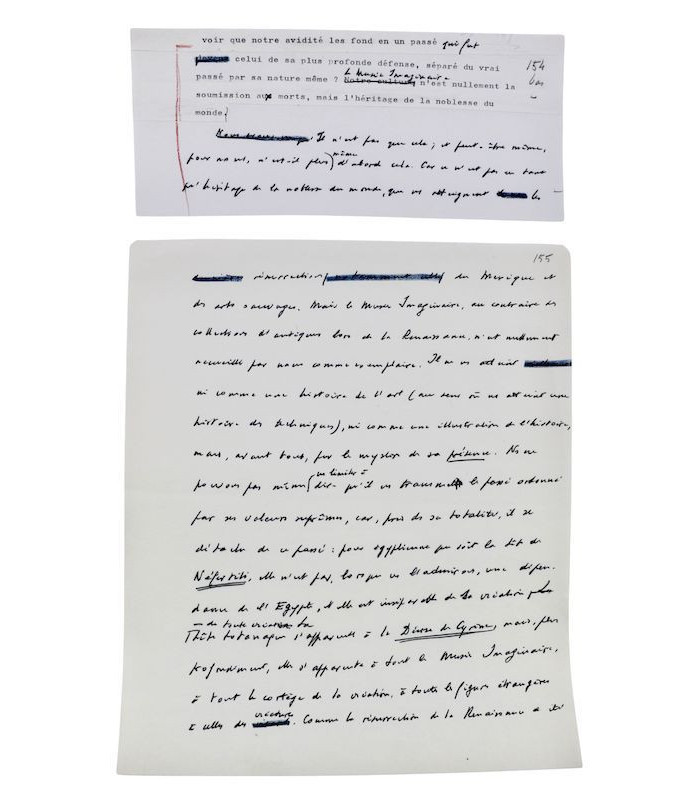 voir que notre avidité les fond en un passé qui fut
celui de sa plus profonde défense, séparé du vrai
154
le Musée Imaginaire
bis
passé par sa nature même ? Notre culture n'est nullement la
soumission aux morts, mais l'héritage de la noblesse du
monde.
Il n'est pas que cela ; et peut-être même,
même
pour nous, n'est-il plus d'abord cela. Car ce n'est pas en tant
qu'héritage de la noblesse du monde, que nous atteignent les
155
résurrections du Mexique et
des arts sauvages. Mais le Musée Imaginaire, au contraire des
collections d'antiques lors de la Renaissance, n'est nullement
accueilli par nous comme exemplaire. Il ne nous atteint
ni comme une histoire de l'art (au sens où nous atteint une
histoire des techniques), ni comme une illustration de l'histoire,
mais, avant tout, par le mystère de sa présence. Nous ne
nous limiter à
pouvons pas même dire qu'il nous transmet le passé ordonné
par ses valeurs suprêmes, car, pris dans sa totalité, il se
détache de ce passé : pour égyptienne que soit la tête de
Néfertiti, elle n'est pas, lorsque nous l'admirons, une dépen-
dance de l'Egypte, et elle est inséparable de la création
de toute création
s'apparente à la Diane de Cyrène, mais, plus
profondément, elle s'apparente à tout le Musée Imaginaire,
à tout le cortège de la création, à toutes les figures étrangères
créatures
à celles des . Comme la résurrection de la Renaissance a été